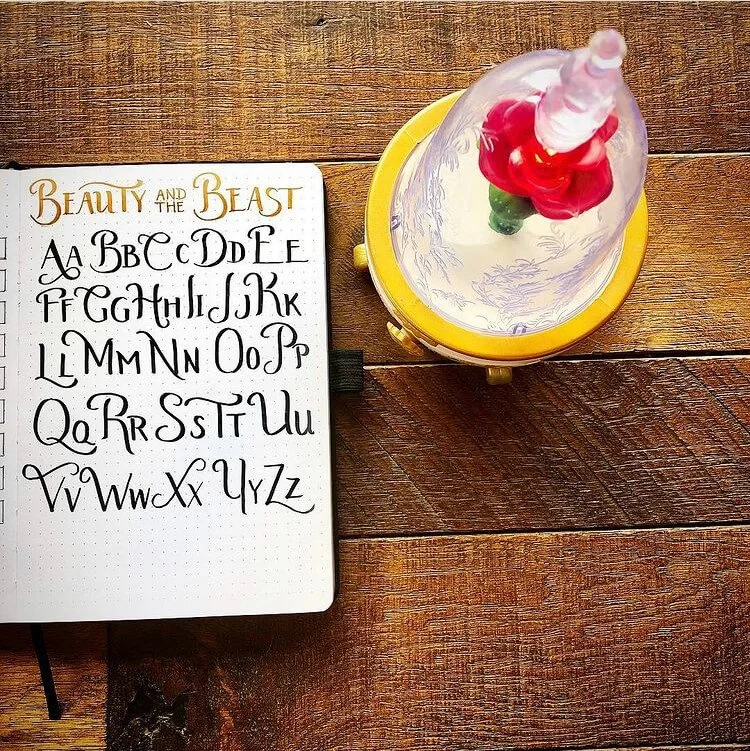 BEAUTY AND THE BEAST
Aa Bb Cc Dd Ee
Ff Gg Hh Ii Jj Kk
Ll Mm Nn Oo Pp
Qq Rr Ss Tt Uu
Vv Ww Xx Yy Zz